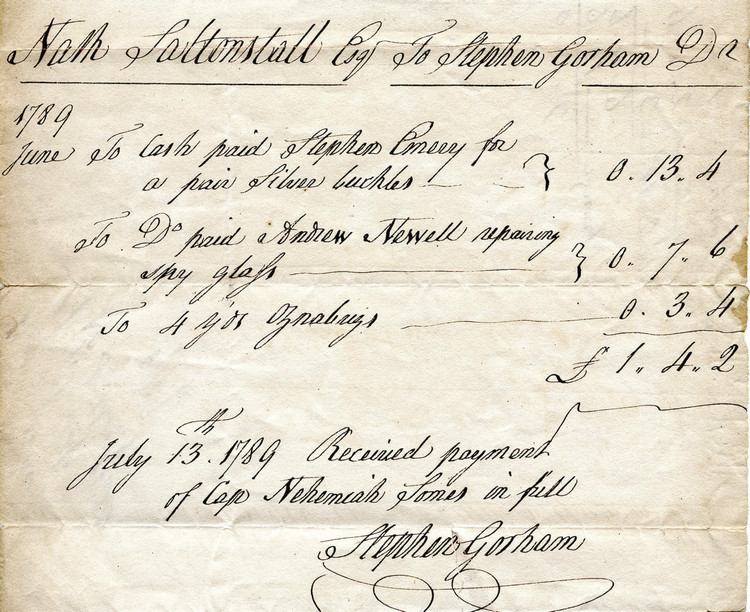 Nath Saltonstall Esq To Stephen Gorham Dr
1789
June To Cash paid Stephen Emery for
a pair Silver buckles } 0. 13. 4
To Do paid Andrew Newell repairing
spy glass } 0. 7. 6
To 4 yds Oznabrigs 0. 3. 4
£ 1. 4. 2
July 13th. 1789 Received payment
of Cap Nehemiah Somes in full
Stephen Gorham